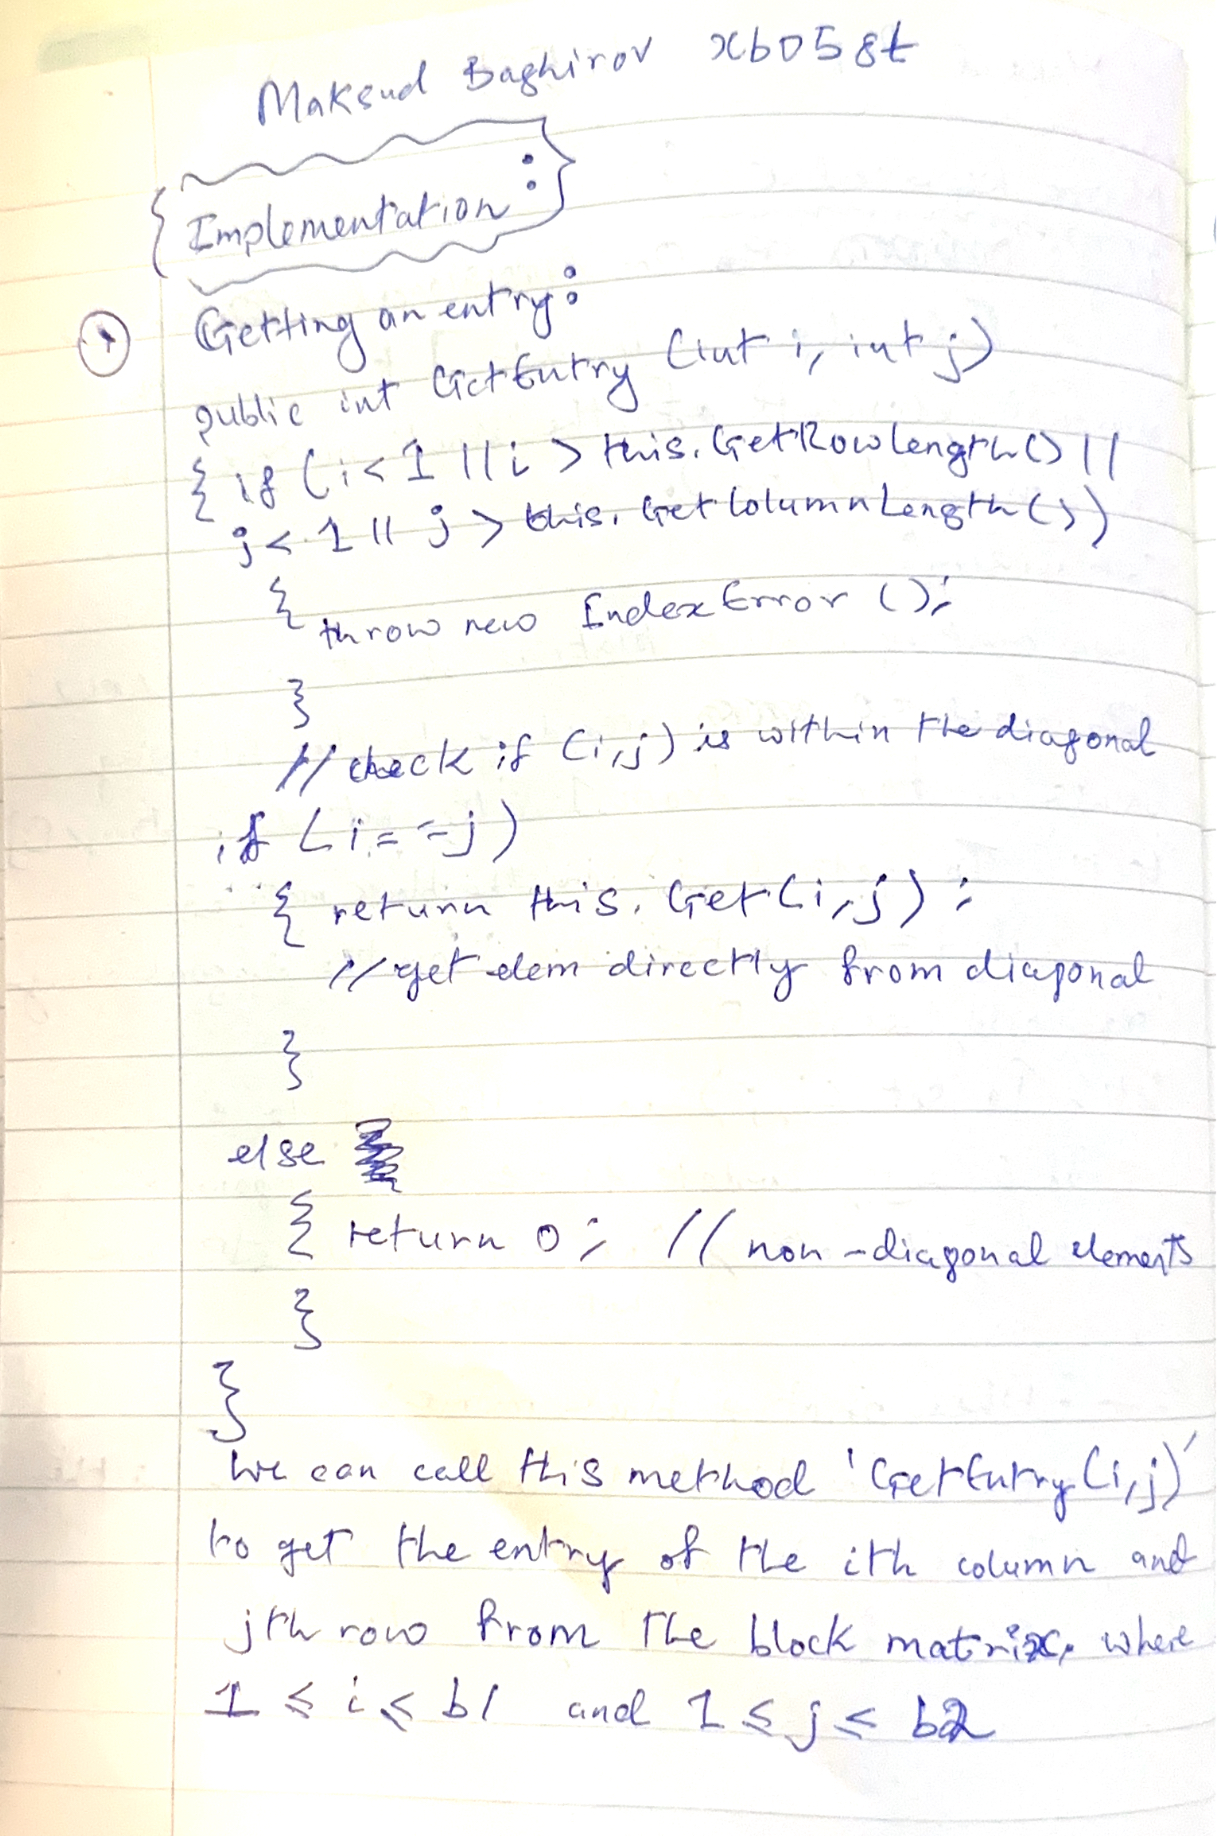 Maksud Baghirov xb058t
{Implementation:}
Getting an entry:
public int GetEntry (int i, int j)
{ if (i < 1 || i > this.GetRowLength() ||
j < 1 || j > this.GetColumnLength())
{
throw new IndexError ();
}
// check if (i,j) is within the diagonal
if (i == j)
{ return this.Get(i,j);
// get elem directly from diagonal
}
else
{ return 0; // non-diagonal elements
}
}
We can call this method 'GetEntry(i,j)'
to get the entry of the ith column and
jth row from the block matrix, where
1 ≤ i ≤ b1 and 1 ≤ j ≤ b2